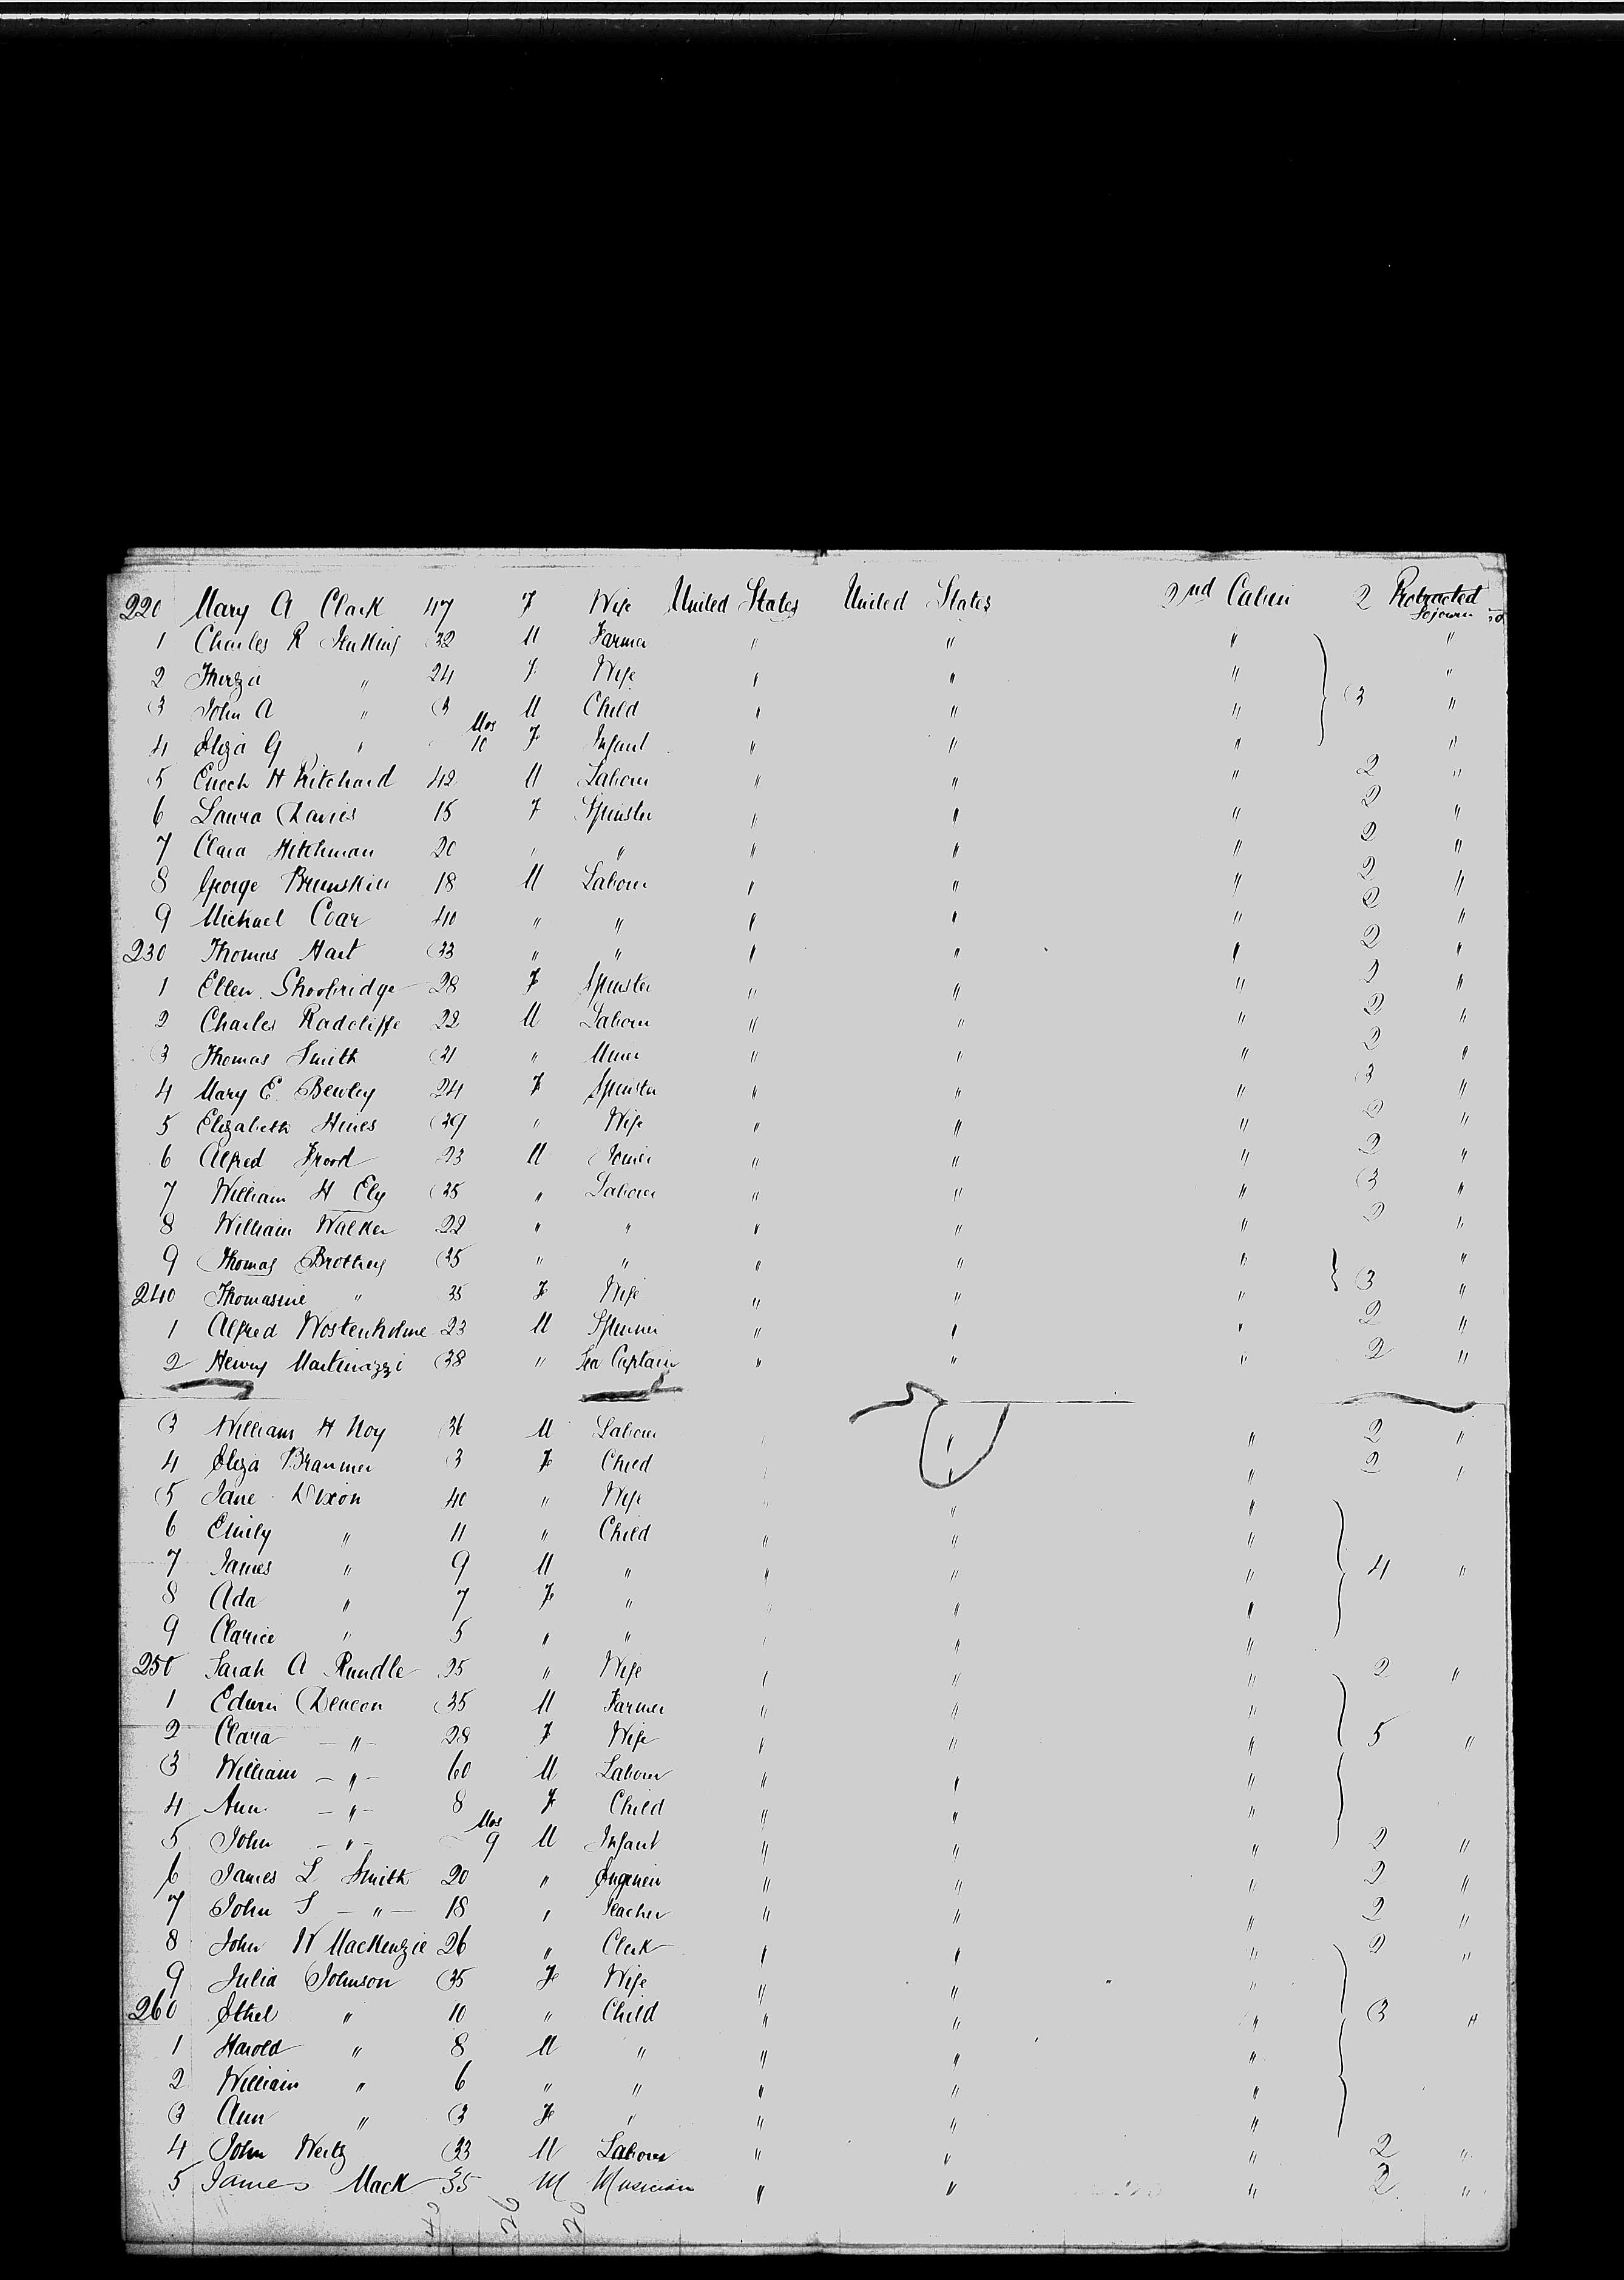 220 Mary A Clark 47 F Wife United States United States 2nd Cabin 2 Protracted Sojourn
1 Charles R Jenkins 32 M Farmer " " " "
2 Thirza " 24 F Wife " " " "
3 John A " 3 M Child " " " 3 "
4 Eliza G " Mos 10 F Infant " " " "
5 Enoch H Pritchard 42 M Labourer " " " 2 "
6 Laura Davies 15 F Spinster " " " 2 "
7 Clara Hitchman 20 " " " " " 2 "
8 George Brunskill 18 M Labourer " " " 2 "
9 Michael Coar 40 " " " " " 2 "
230 Thomas Hart 33 " " " " " 2 "
1 Ellen Shoobridge 28 F Spinster " " " 2 "
2 Charles Radcliffe 22 M Labourer " " " 2 "
3 Thomas Smith 21 " Miner " " " 2 "
4 Mary E Bewley 24 F Spinster " " " 3 "
5 Elizabeth Hines 39 " Wife " " " 2 "
6 Alfred Frood 23 M Joiner " " " 2 "
7 William H Ely 35 " Labourer " " " 3 "
8 William Walker 22 " " " " " 2 "
9 Thomas Brothers 35 " " " " " "
240 Thomasine " 35 F Wife " " " 3 "
1 Alfred Wostenholme 23 M Spinner " " " 2 "
2 Henry Martinazzi 38 " Sea Captain " " " 2 "
3 William H Noy 36 M Labourer " " " 2 "
4 Eliza Brammer 3 F Child " " " 2 "
5 Jane Dixon 40 " Wife " " "
6 Emily " 11 " Child " " "
7 James " 9 M " " " " 4 "
8 Ada " 7 F " " " "
9 Clarice " 5 " " " " "
250 Sarah A Rundle 25 " Wife " " " 2 "
1 Edwin Deacon 35 M Farmer " " "
2 Clara " 28 F Wife " " " 5 "
3 William " 60 M Labourer " " "
4 Ann " 8 F Child " " "
5 John " Mos 9 M Infant " " " 2 "
6 James L Smith 20 " Engineer " " " 2 "
7 John S " 18 " Teacher " " " 2 "
8 John W MacKenzie 26 " Clerk " " " 2 "
9 Julia Johnson 35 F Wife " " "
260 Ethel " 10 " Child " " " 3 "
1 Harold " 8 M " " " "
2 William " 6 " " " " "
3 Ann " 3 F " " " "
4 John Wertz 33 M Labourer " " " 2 "
5 James Mack 35 M Musician " " " 2 "
26 20